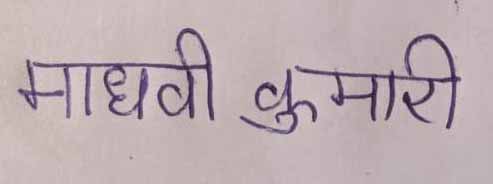 माधवी कुमारी